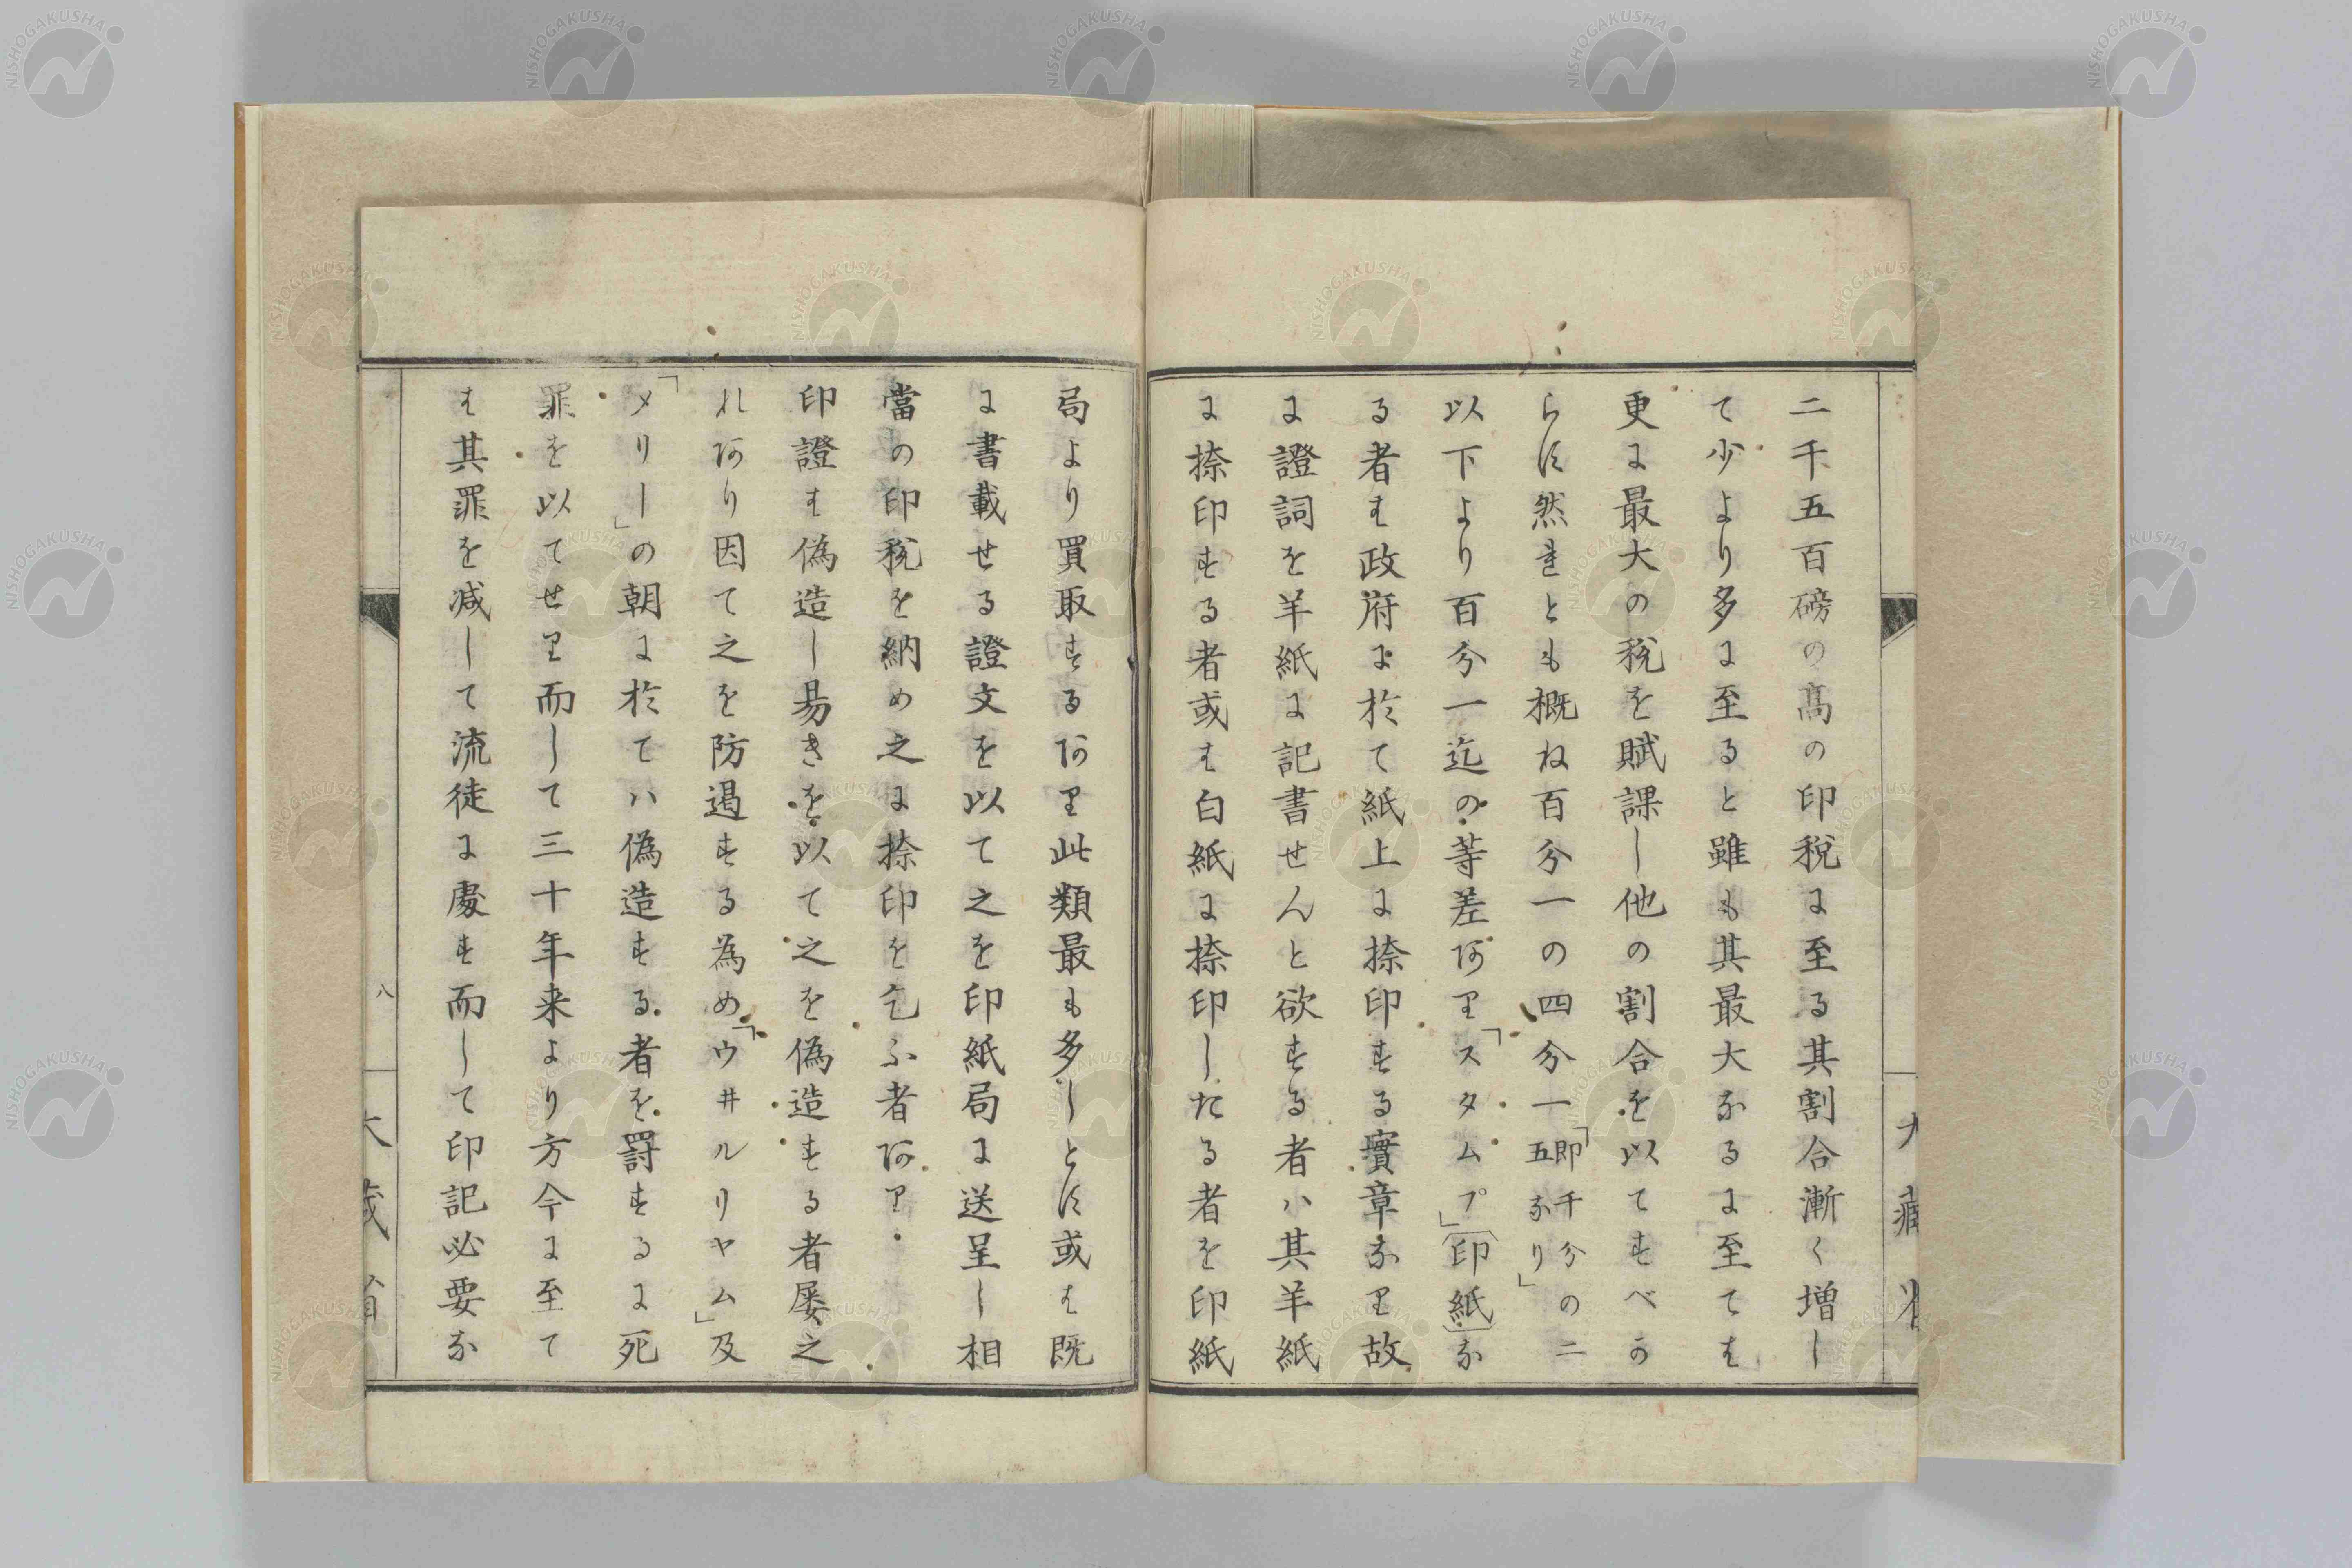 二千五百磅の高の印税に至る其割合漸く増し
て少より多に至ると雖も其最大なるに至ては
更に最大の税を賦課し他の割合を以てすべか
らす然れとも概ね百分一の四分一「即千分の二五なり」
以下より百分一迄の等差あり「スタムプ」(印紙)な
る者は政府に於て紙上に捺印する實章なり故
に證詞を羊紙に記書せんと欲する者ハ其羊紙
に捺印する者或は白紙に捺印したる者を印紙
局より買取するあり此類最も多しとす或は既
に書載せる證文を以て之を印紙局に送呈し相
當の印税を納め之に捺印を乞ふ者あり
印證は偽造し易きを以て之を偽造する者屡之
れあり因て之を防遏する為め「ウヰルリヤム」及
「メリー」の朝に於てハ偽造する者を罰するに死
罪を以てせり而して三十年来より方今に至て
は其罪を減して流徒に處す而して印記必要な
八
大蔵省
NISHOGAKUSHA